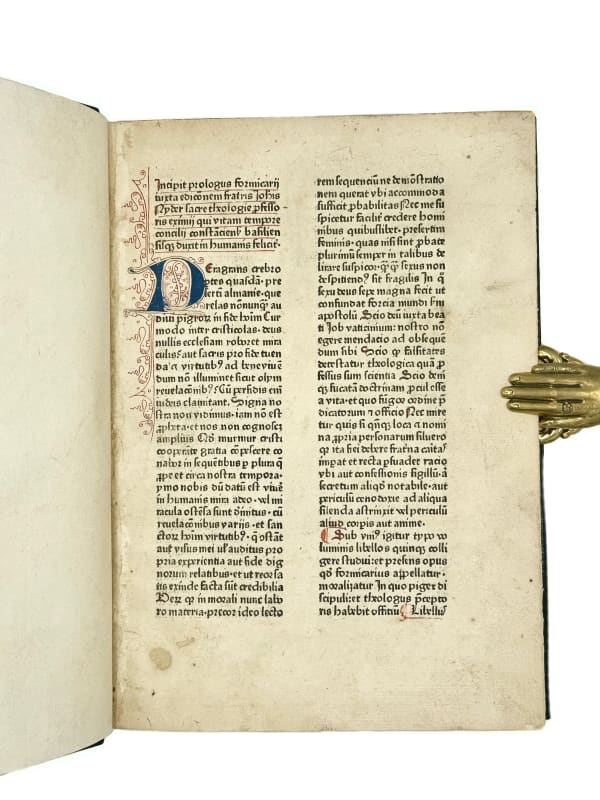 Incipit prologus formicarij
iuxta edicōnem fratris Joh̄is
Nyder sacre theologie p̱fesso
ris eximij qui vitam tempore
concilij constāciens̄ basilien
sisq̄ duxit in humanis felicit᷑
DEragrans crebro
p̱tes quasdā· pre
serti almanie·que
relas nōnunq̄ȝ au
diui pigroꝝ in fide hoīm Cur
modo inter cristicolas·deus
nullis ecclesiam roboret mira
culis? aut sacris pro fide tuen
da et virtutibꝰ ad beneviuen
dum nō illuminet sicut olym
reuelacōnibꝰ? Cū perfidis em̄
iudeis clamitant. Signa no
stra nō vidimus·iam nō est
ꝓpheta·et nos non cognoscet
amplius Qd̄ murmur cristi
cooperāte gratia cōpescere co
nabor in sequētibus p̱ plura q̄
ꝓpe et circa nostra tempora·
ymo nobis dū datū est viuē
in humanis mira adeo·vel mi
racula ostēsa sunt diuitus·cū
reuelacōnibus varijs·et san
ctoꝝ hoīm virtutibꝰ· q̄ ostāt
aut visus mei uł auditus pro
pria experientia aut fide dig
norum relatibus·et ut recor sa
tis exinde facta sūt credibilia
Veꝝ q̄ in morali nunc labo
ro materia·precor ideo lecto
rem sequenciū ne demōstratio
nem querat vbi accommoda
sufficit ꝓbabilitas Nec me su
spicetur facilē credere homi
nibus quibuslibet·presertim
feminis·quas nisi sint ꝓbate
plurimū semper in talibus de
lirare suspicor·q̄ȝ q̄ȝ sexus non
despiciendꝰ sit fragilis In q̄
sexu deus sepe magna fecit ut
confundat forcia mundi s̄m
apostolū Scio deū iuxta bea
ti Job vaticinium: nostro nō
egere mendacio ad obseque
dum sibi Scio q̄ falsitates
detestatur theologica quā ꝓ
fessus sum scientia Scio deniq̄
q̄ fucatā doctrinam ꝓcul esse
a vita·et quo fūgor ordine p̄
dicatorum et officio Nec mire
tur quis si q̄nq̄ȝ loca et nomi
na ꝓpria personarum siluero
q̄ ita fiei debere fr̄atna caitas
impat et recta ꝓsuadet racio
vbi aut confessionis sigillū·aut
secretum aliqd̄ notabile·aut
periculū cenodoxie ad aliqua
silenda astrīxit vel periculū
aliud corpis aut anime.
Sub vniꝰ igitur typo vo
luminis libellos quinqȝ colli
gere studui: et presens opus
qd̄ formicarius appellatur·
moralizatur In quo piger di
scipuli: et theologus p̄cepto
ris habebit officiū Libellū